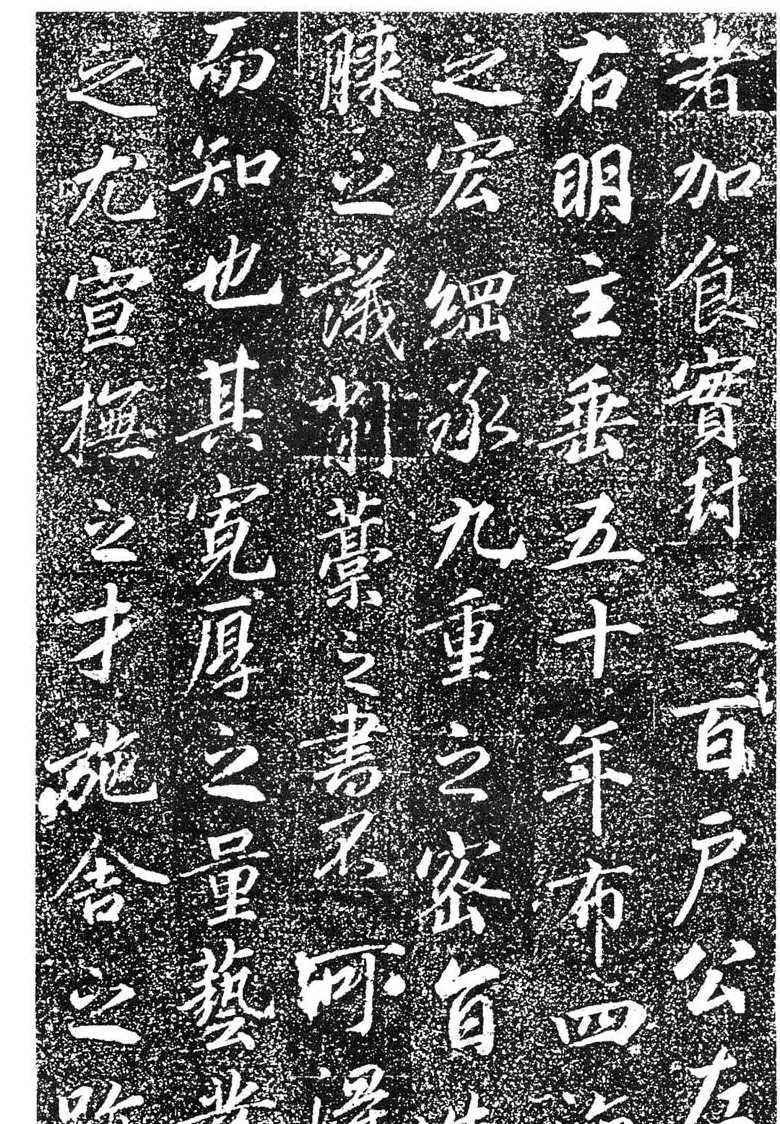 者加食實封三百戶公左
右明主垂五十年布四海
之宏綱承九重之密旨
睞之議削藁之書不可得
而知也其寬厚之量藝業
之尤宣撫之才施舍之跡